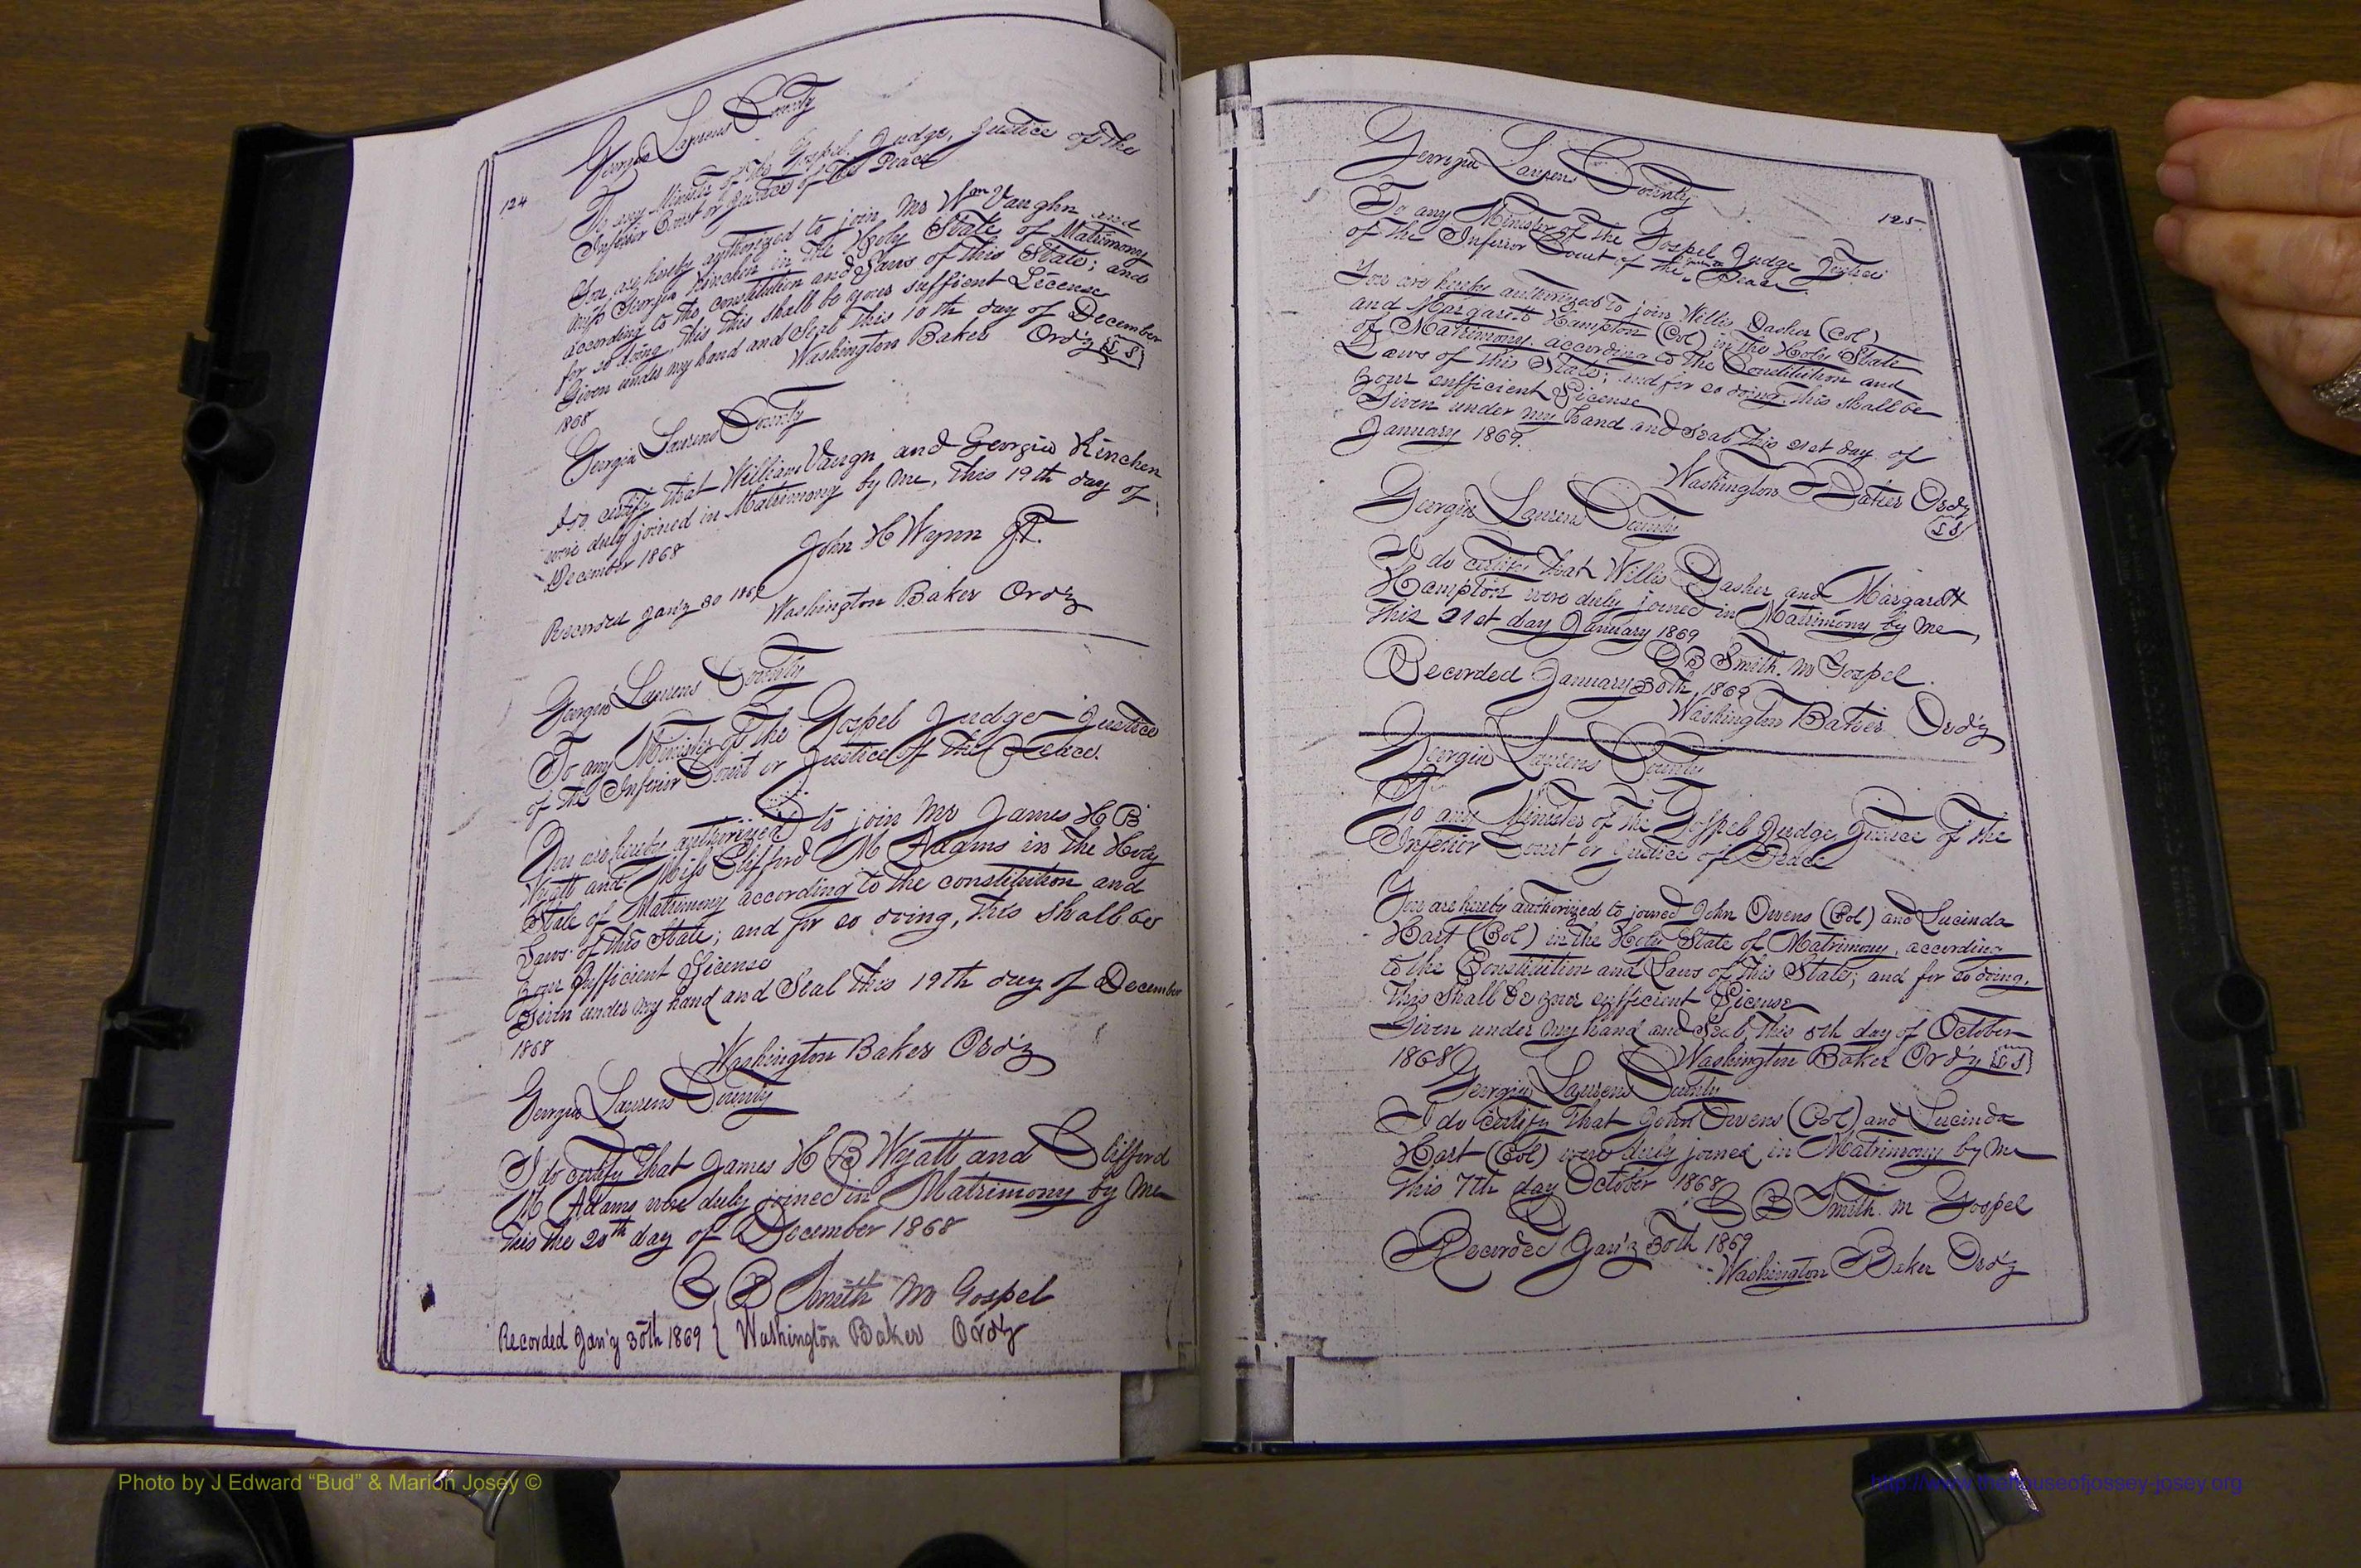 124
Georgia Laurens County
To any Minister of the Gospel, Judge, Justice of the
Inferior Court or Justice of the Peace
You are hereby authorized to join Mr Wm Vaughn and
Miss Georgia Kinchen in the Holy State of Matrimony
according to the constitution and Laws of this State; and
for so doing this this shall be your suffient License
Given under my hand and Seal this 10th day of December
1868 Washington Baker Ord'y (L S)
Georgia Laurens County
I do certify that William Vaugn and Georgia Kinchen
were duly joined in Matrimony by me, this 19th day of
December 1868
John H Wynn J.P.
Recorded Jan'y 30 1869
Washington Baker Ord'y
Georgia Laurens County
To any Minister of the Gospel Judge Justice
of the Inferior Court or Justice of the Peace.
You are hereby authorized to join Mr James H B
Wyatt and Miss Clifford M Adams in the Holy
State of Matrimony according to the constitution and
Laws of this State; and for so doing, this shall be
your sufficient License
Given under my hand and Seal this 19th day of December
1868
Washington Baker Ord'y
Georgia Laurens County
I do certify that James H B Wyatt and Clifford
M Adams were duly joined in Matrimony by me
this the 20th day of December 1868
C B Smith M Gospel
Recorded Jan'y 30th 1869 { Washington Baker Ord'y
125
Georgia Laurens County
To any Minister of the Gospel Judge Justice
of the Inferior Court of the Peace
You are hereby authorized to join Willis Dasher (Col)
and Margarett Hampton (Col) in the Holy State
of Matrimony according to the Constitution and
Laws of this State; and for so doing this shall be
your sufficient License
Given under my hand and Seal this 21st day of
January 1869.
Washington Baker Ord'y
(L S)
Georgia Laurens County
I do certify that Willis Dasher and Margarett
Hampton were duly joined in Matrimony by me,
this 21st day January 1869
C B Smith. M Gospel.
Recorded January 30th, 1869
Washington Baker Ord'y
Georgia Laurens County
To any Minister of the Gospel Judge Justice of the
Inferior Court or Justice of Peace
You are hereby authorized to joined John Owens (Col) and Lucinda
Hart (Col) in the Holy State of Matrimony, according
to the Constitution and Laws of this State; and for so doing,
this shall be your sufficient License
Given under my hand and Seal this 5th day of October
1868 Washington Baker Ord'y (L S)
Georgia Laurens County
I do certify that John Owens (Col) and Lucinda
Hart (Col) were duly joined in Matrimony by me
this 7th day October 1868
C B Smith. M Gospel
Recorded Jan'y 30th 1869
Washington Baker Ord'y
Photo by J Edward “Bud” & Marion Josey ©
http://www.thehouseofjossey-josey.org